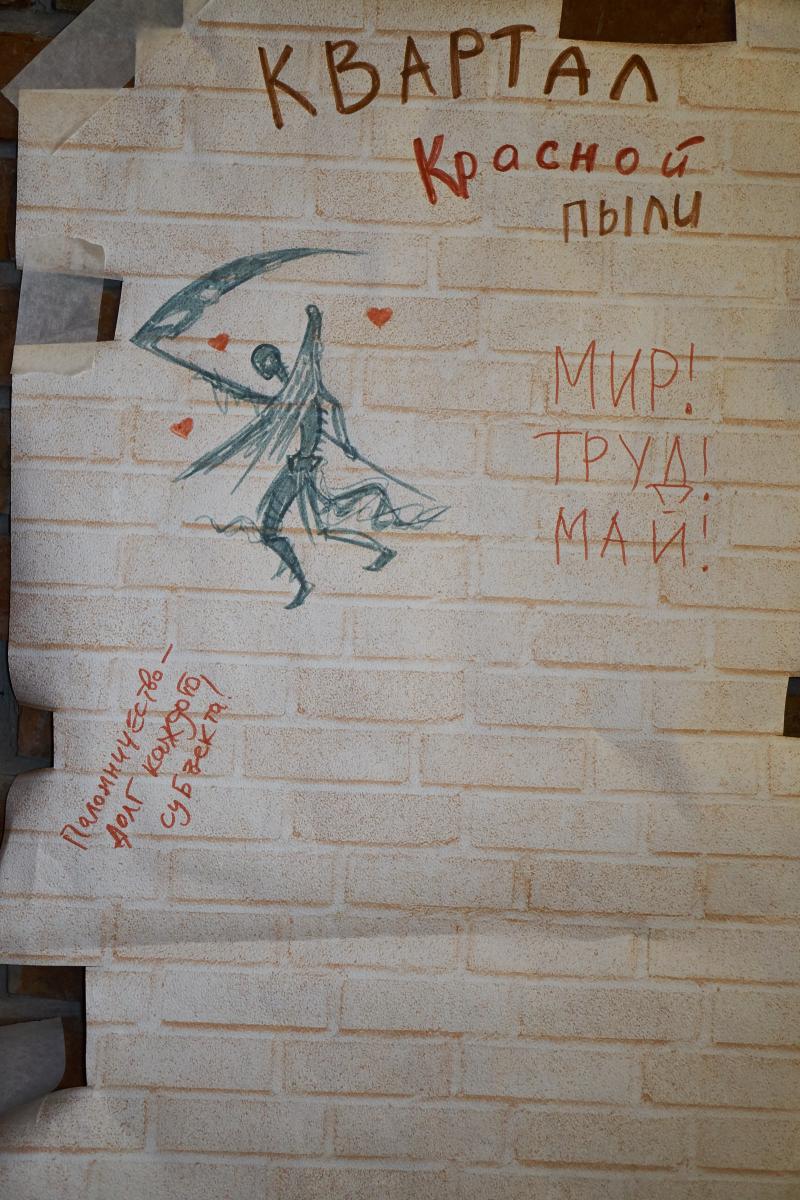 КВАРТАЛ
Красной
пыли
МИР!
ТРУД!
МАЙ!
Паломничество —
долг каждого
субъекта!